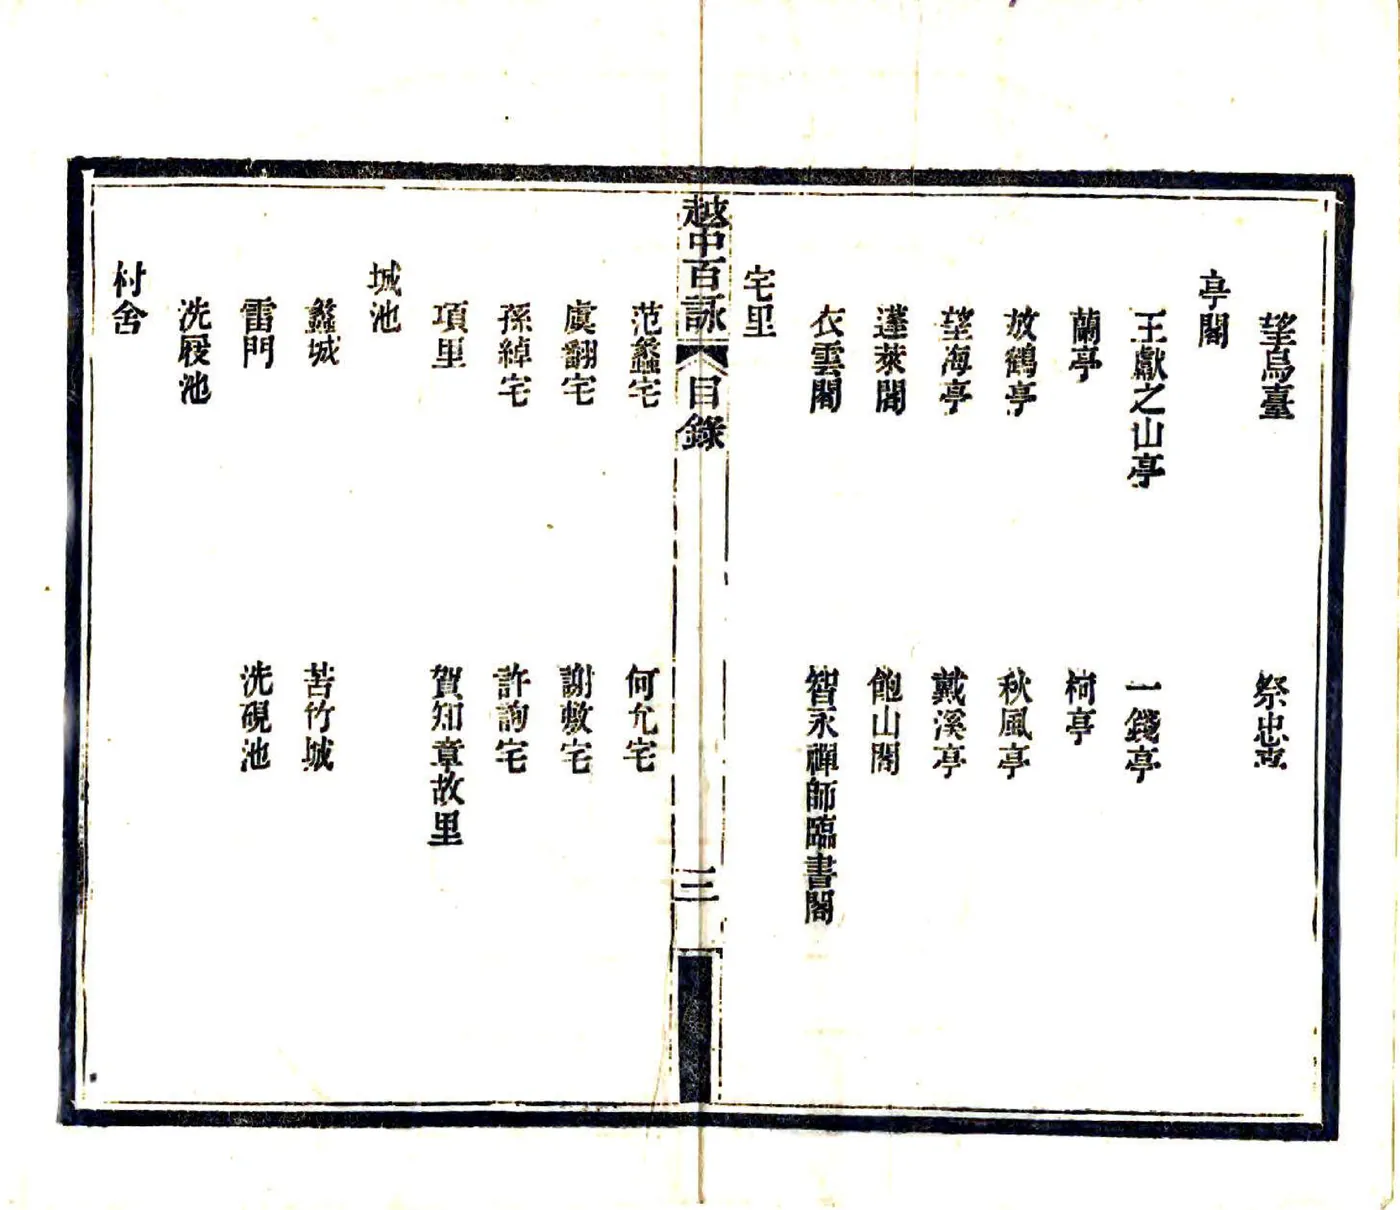 望烏臺
祭忠
亭閣
王獻之山亭
一錢亭
蘭亭
柯亭
放鶴亭
秋風亭
望海亭
戴溪亭
蓬萊閣
飽山閣
衣雲閣
智永禪師臨書閣
宅里
越中百詠
目錄
三
范蠡宅
何允宅
虞翻宅
謝敷宅
孫綽宅
許詢宅
項里
賀知章故里
城池
蠡城
苦竹城
雷門
洗硯池
洗屐池
村舍